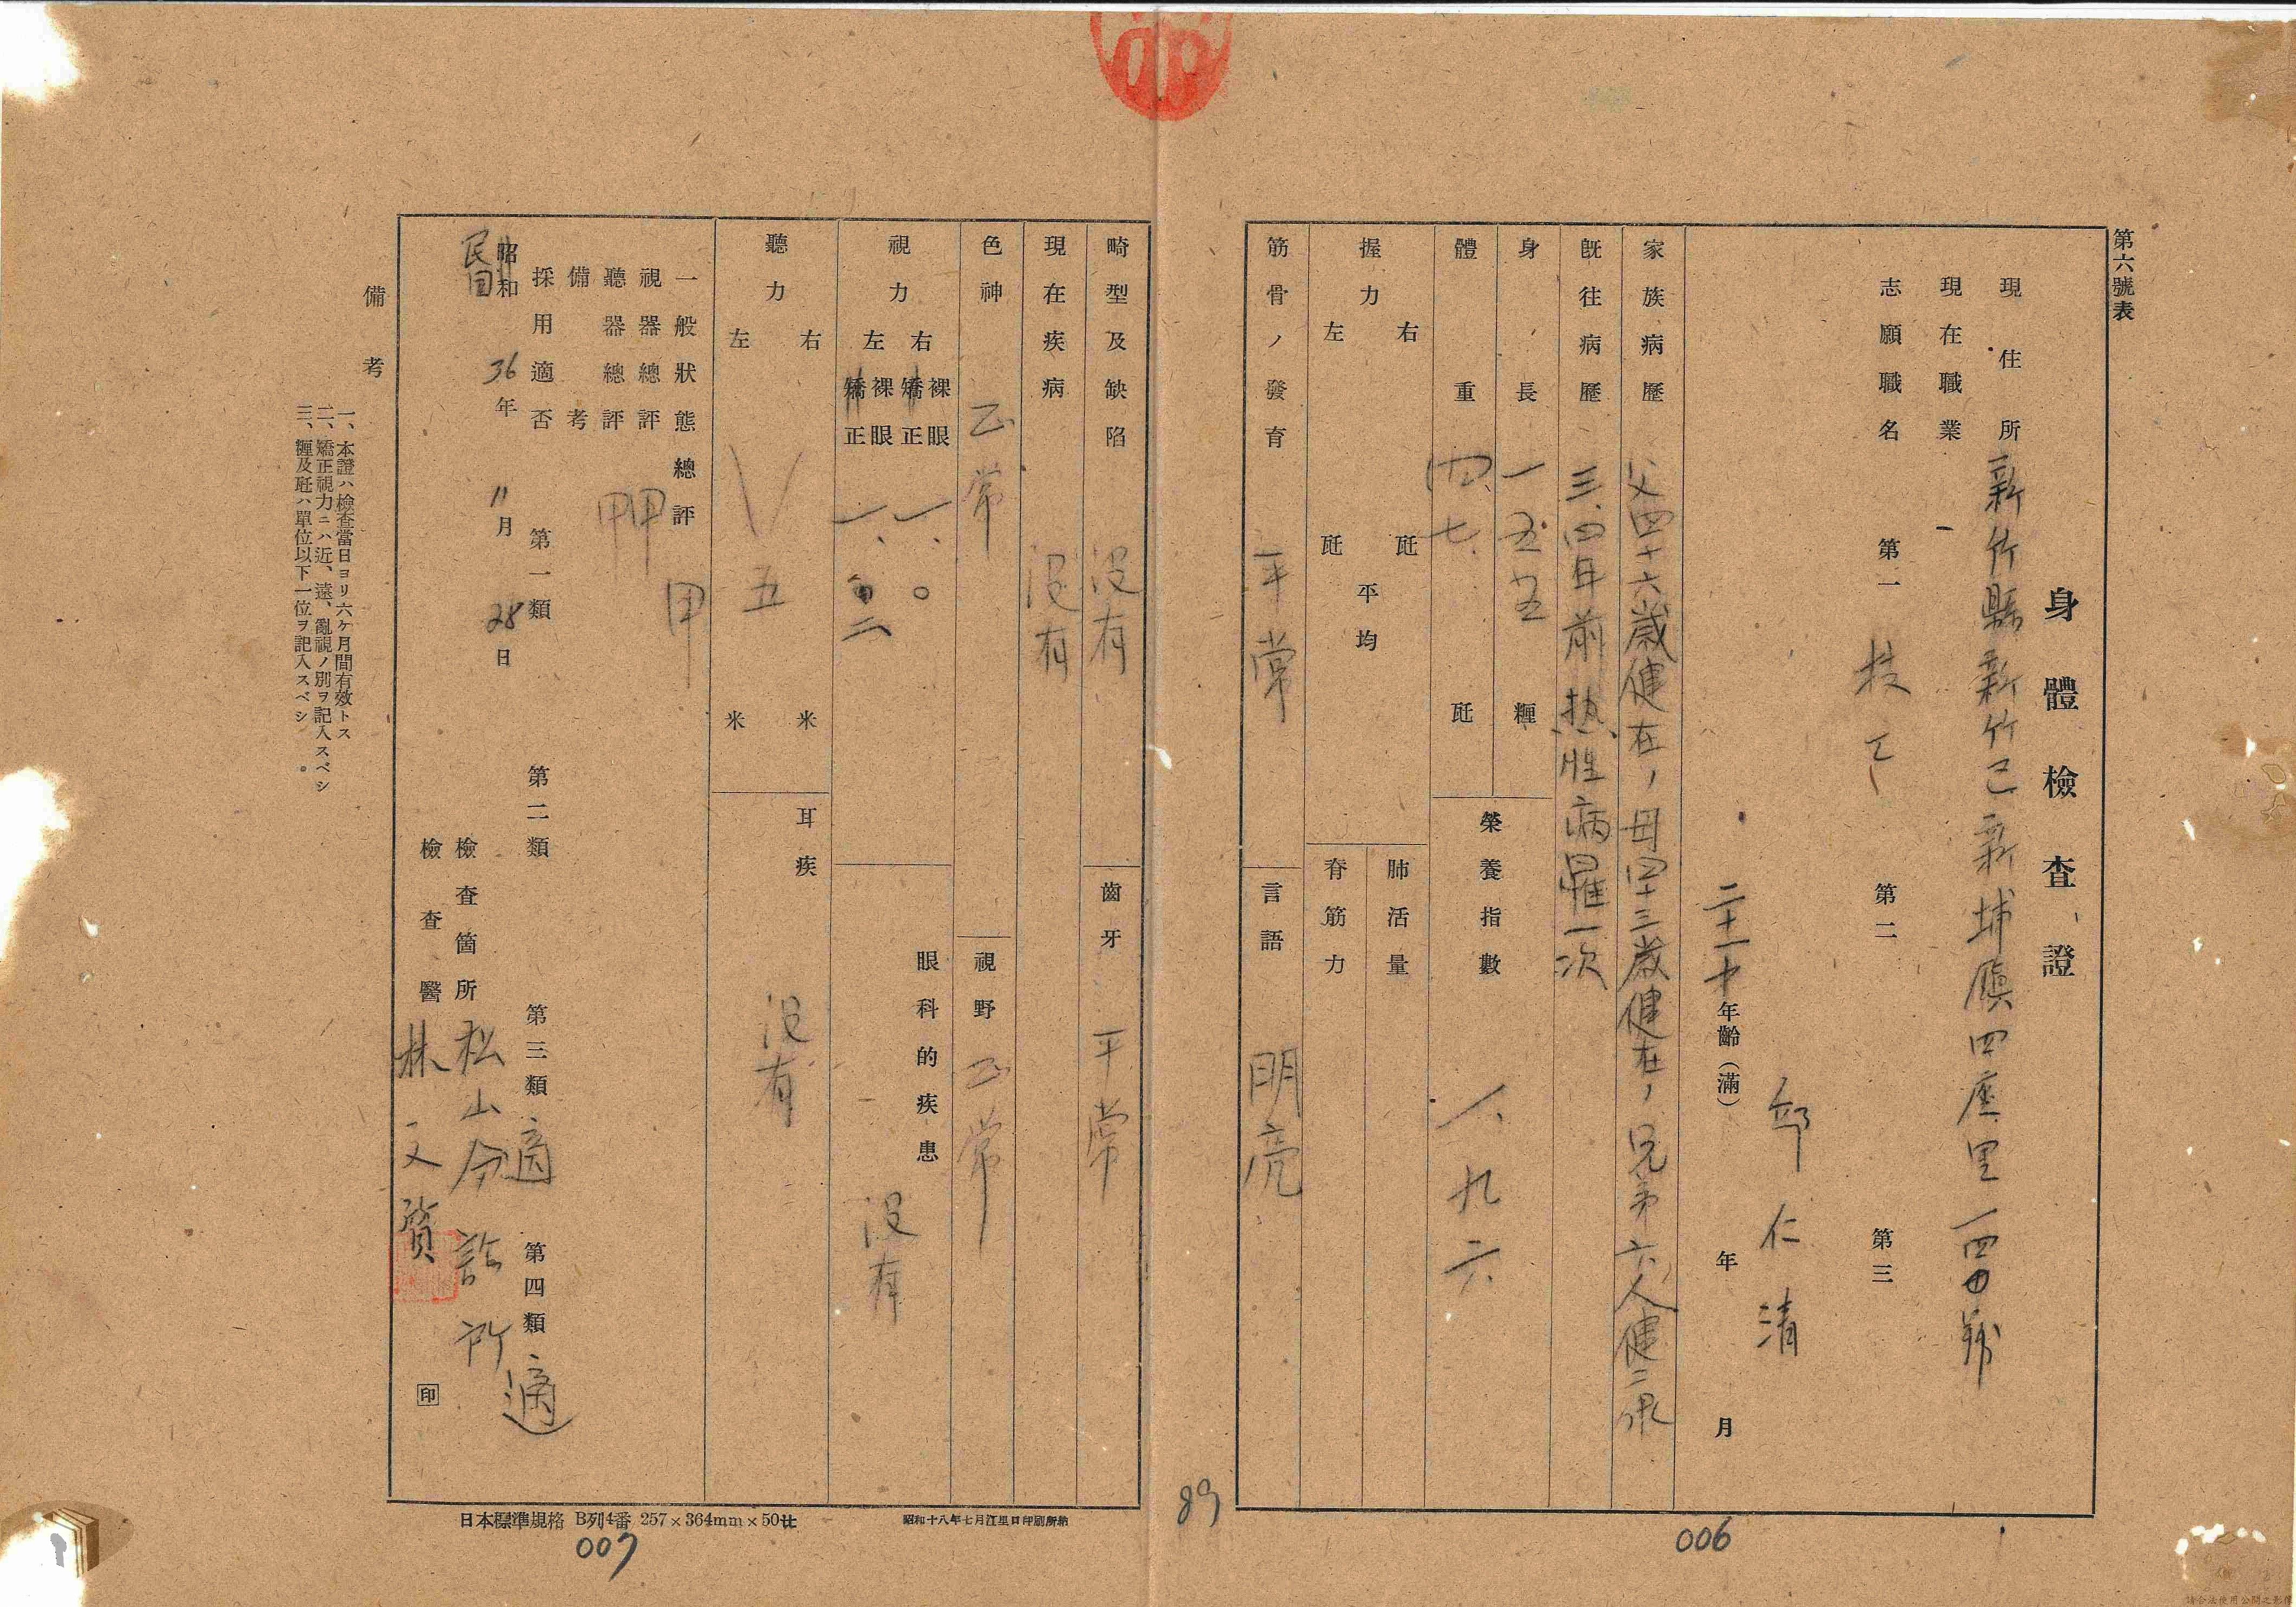 第六號表
身體檢查證
現住所 新竹縣新竹 新埔鎮四座里一四 號
現在職業
志願職名 第一 技工 第二 第三
邱仁清
二十一才 年齡(滿) 年 月
家族病歷 父四十六歲健在,母四十三歲健在,兄弟六人健在
既往病歷 三、四年前热性病罹一次
身長 一五五 糎
體重 四七、 瓩
榮養指數 一、九六
握力 右 瓩 左 瓩 平均
肺活量
脊筋力
筋骨ノ發育 平常
言語 明亮
畸型及缺陷 没有
齒牙 平常
現在疾病 没有
色神 正常
視野 正常
視力 右 裸眼 矯正 一、〇
左 裸眼 矯正 一、二
眼科的疾患 没有
聽力 右 米 左 米 五
耳疾 没有
一般狀態總評 甲
視器總評 甲
聽器總評 甲
備考
採用適否 第一類 第二類 第三類 適 第四類 適
昭和 民国 36年 11月 28日
檢查箇所 松山分診所
檢查醫 林文質 印
備考
一、本證ハ檢查當日ヨリ六ケ月間有效トス
二、矯正視力ニハ近、遠、亂視ノ別ヲ記入スベシ
三、糎及瓩ハ單位以下一位ヲ記入スベシ。
89
006
日本標準規格 B列4番 257×364mm×50
昭和十八年七月江里口印刷所納
007
請合法使用公開之影像